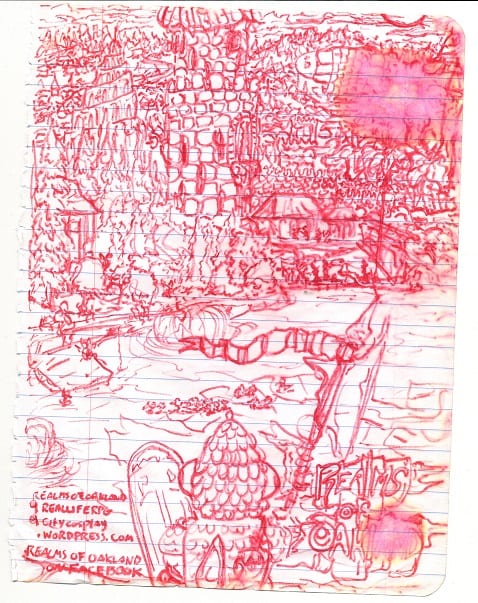 REALMS
OF
OAK
REALMSOFOAKLAND
@ REALLIFERPG
@ CITYCOSPLAY
.WORDPRESS.COM
REALMS OF OAKLAND
ON FACEBOOK